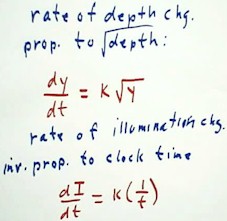 rate of depth chg.
prop. to √depth:
dy/dt = K√y
rate of illumination chg.
inv. prop. to clock time
dI/dt = K(1/t)